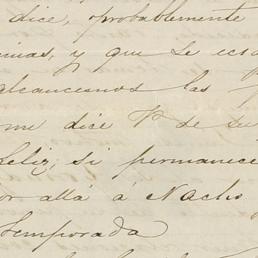 dice, probablemente
y que se
alcancemos las
me dice V. de su
feliz, si permanece
por allá á Nacho
temporada